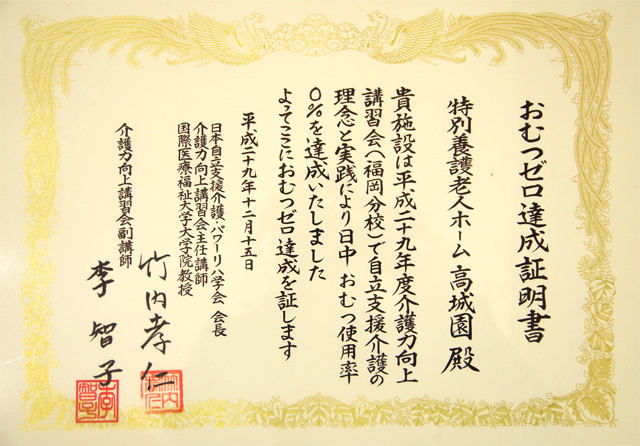 おむつゼロ達成証明書
特別養護老人ホーム 高城園 殿
貴施設は平成二十九年度介護力向上
講習会(福岡分校)で自立支援介護の
理念と実践により日中 おむつ使用率
0%を達成いたしました
よってここにおむつゼロ達成を証します
平成二十九年十二月十五日
日本自立支援介護・パワーリハ学会 会長
介護力向上講習会主任講師
国際医療福祉大学大学院教授
竹内孝仁
介護力向上講習会副講師
李 智子